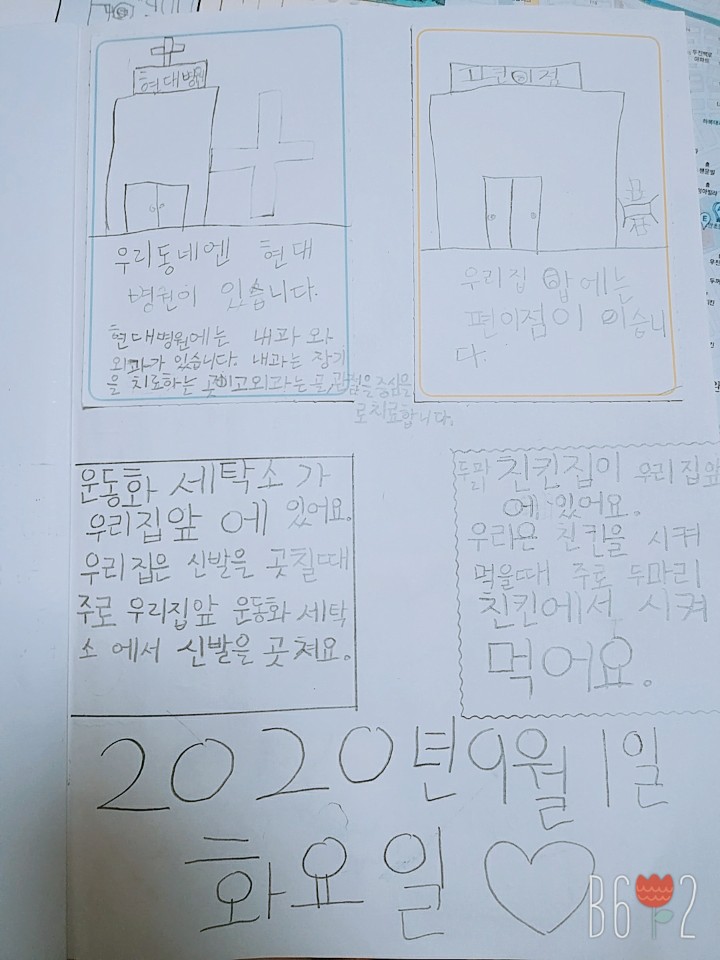 현대병원
우리동네엔 현대
병원이 있습니다.
현대병원에는 내과 와
외과가 있습니다. 내과는 장기
을 치료하는 곳이고 외과는 관절을 중심을
로치료합니다.
우리집 앞에는
편이점이 이습니
다.
운동화 세탁소 가
우리집앞 에 있어요.
우리집은 신발을 곳칠때
주로 우리집앞 운동화 세탁
소 에서 신발을 곳쳐요.
두마리 친킨집이 우리집앞
에 있어요.
우리은 친킨을 시켜
먹을때 주로 두마리
친킨에서 시켜
먹어요.
2020년 9월 1일
화요일
B6 2